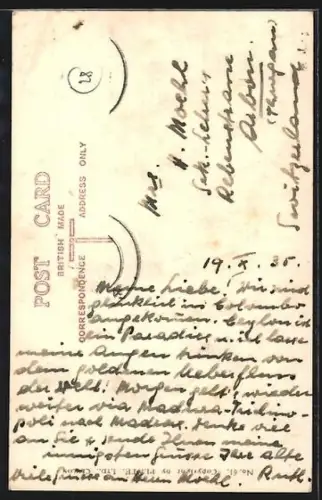 POST CARD
BRITISH MADE
CORRESPONDENCE
ADDRESS ONLY
28
Mrs. H. Moehl
Sek.-Lehrers
Rebenstrasse
Arbon
(Thurgau)
Switzerland
19. X. 35.
Meine Liebe! Wir sind
glücklich in Colombo
angekommen. Ceylon ist
ein Paradies u. ich lasse
meine Augen trinken von
dem goldenen Ueberfluss
der Welt. Morgen geht's wieder
weiter via Madura-Trichino-
poli nach Madras. Denke viel
an Sie & sende Ihnen meine
innigsten Grüsse Ihre alte
Ruth.
Viele Grüsse an Herrn Moehl
Copyright by PLATÉ Ltd.